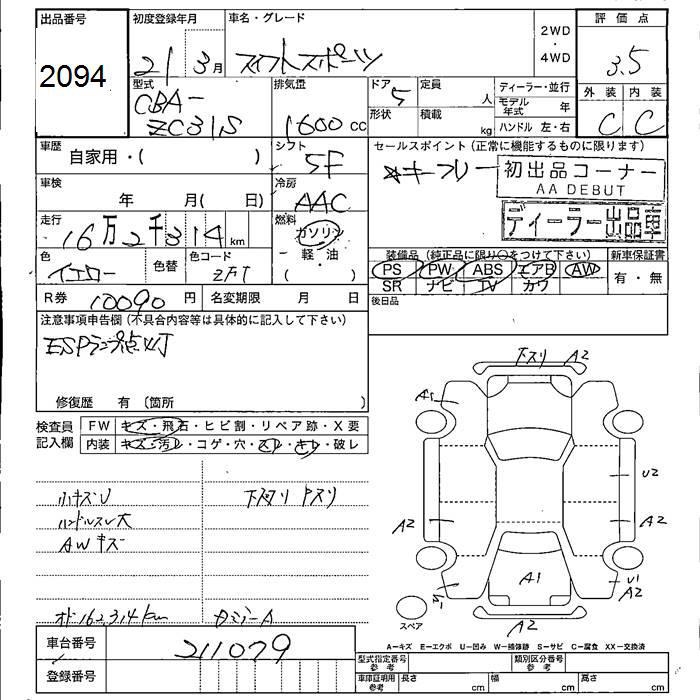 出品番号
初度登録年月
車名・グレード
2WD
・
4WD
評価点
2094
21 3月
スイフトスポーツ
3.5
型式
排気量
ドア
定員
ディーラー・並行
外装 内装
CBA-
ZC31S
1600 cc
5
人
モデル年式 年
C C
形状
積載
kg
ハンドル 左・右
車歴
自家用・( )
シフト
5F
セールスポイント (正常に機能するものに限ります)
キーフリー
初出品コーナー
AA DEBUT
ディーラー出品車
車検
年 月( 日)
冷房
AAC
走行
16万2千314 km
燃料
ガソリン
・
軽・油
( )
色
イエロー
色替
色コード
ZFT
装備品 (純正品に限り○をつけて下さい)
新車保証書
PS PW ABS エアB AW
SR ナビ TV カワ
有・無
R券 10090 円
名変期限 月 日
後日品
注意事項申告欄 (不具合内容等は具体的に記入して下さい)
ESPランプ点灯
修復歴 有 (箇所 )
検査員
記入欄
FW キズ・飛石・ヒビ割・リペア跡・X要
内装 キズ・汚レ・コゲ・穴・スレ・キレ・破レ
小キズU
ハンドルスレ大
AWキズ
下スリ A2
A1
U2
A2
A2
A1
U1
A2
スペア
A2
オド162,314km
A-キズ E-エクボ U-凹み W-補修跡 S-サビ C-腐食 XX-交換済
車台番号
211079
登録番号
型式指定番号
参考
類別区分番号
参考
車庫証明用
参考
長さ cm
幅 cm
高さ cm